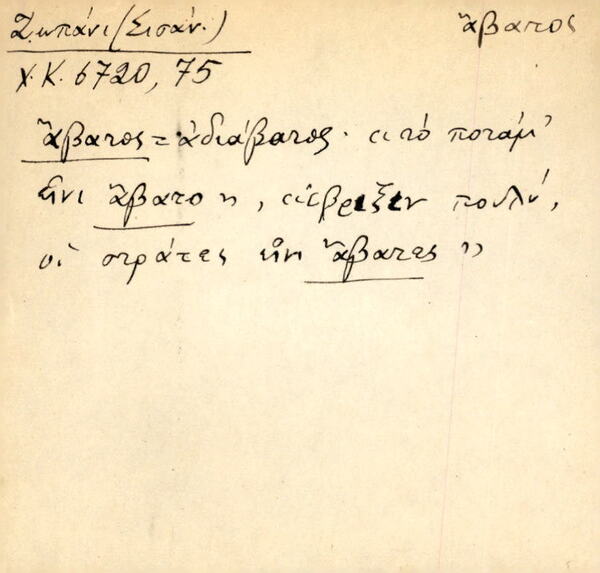 Ζωπάνι (Σισάν.)
ἄβατος
Χ.Κ. 6720, 75
ἄβατος = ἀδιάβατος· «τὸ ποτάμ'
εἶνι ἄβατο», «ἔβρεξεν πουλύ,
οἱ στράτες εἶνι ἄβατες»